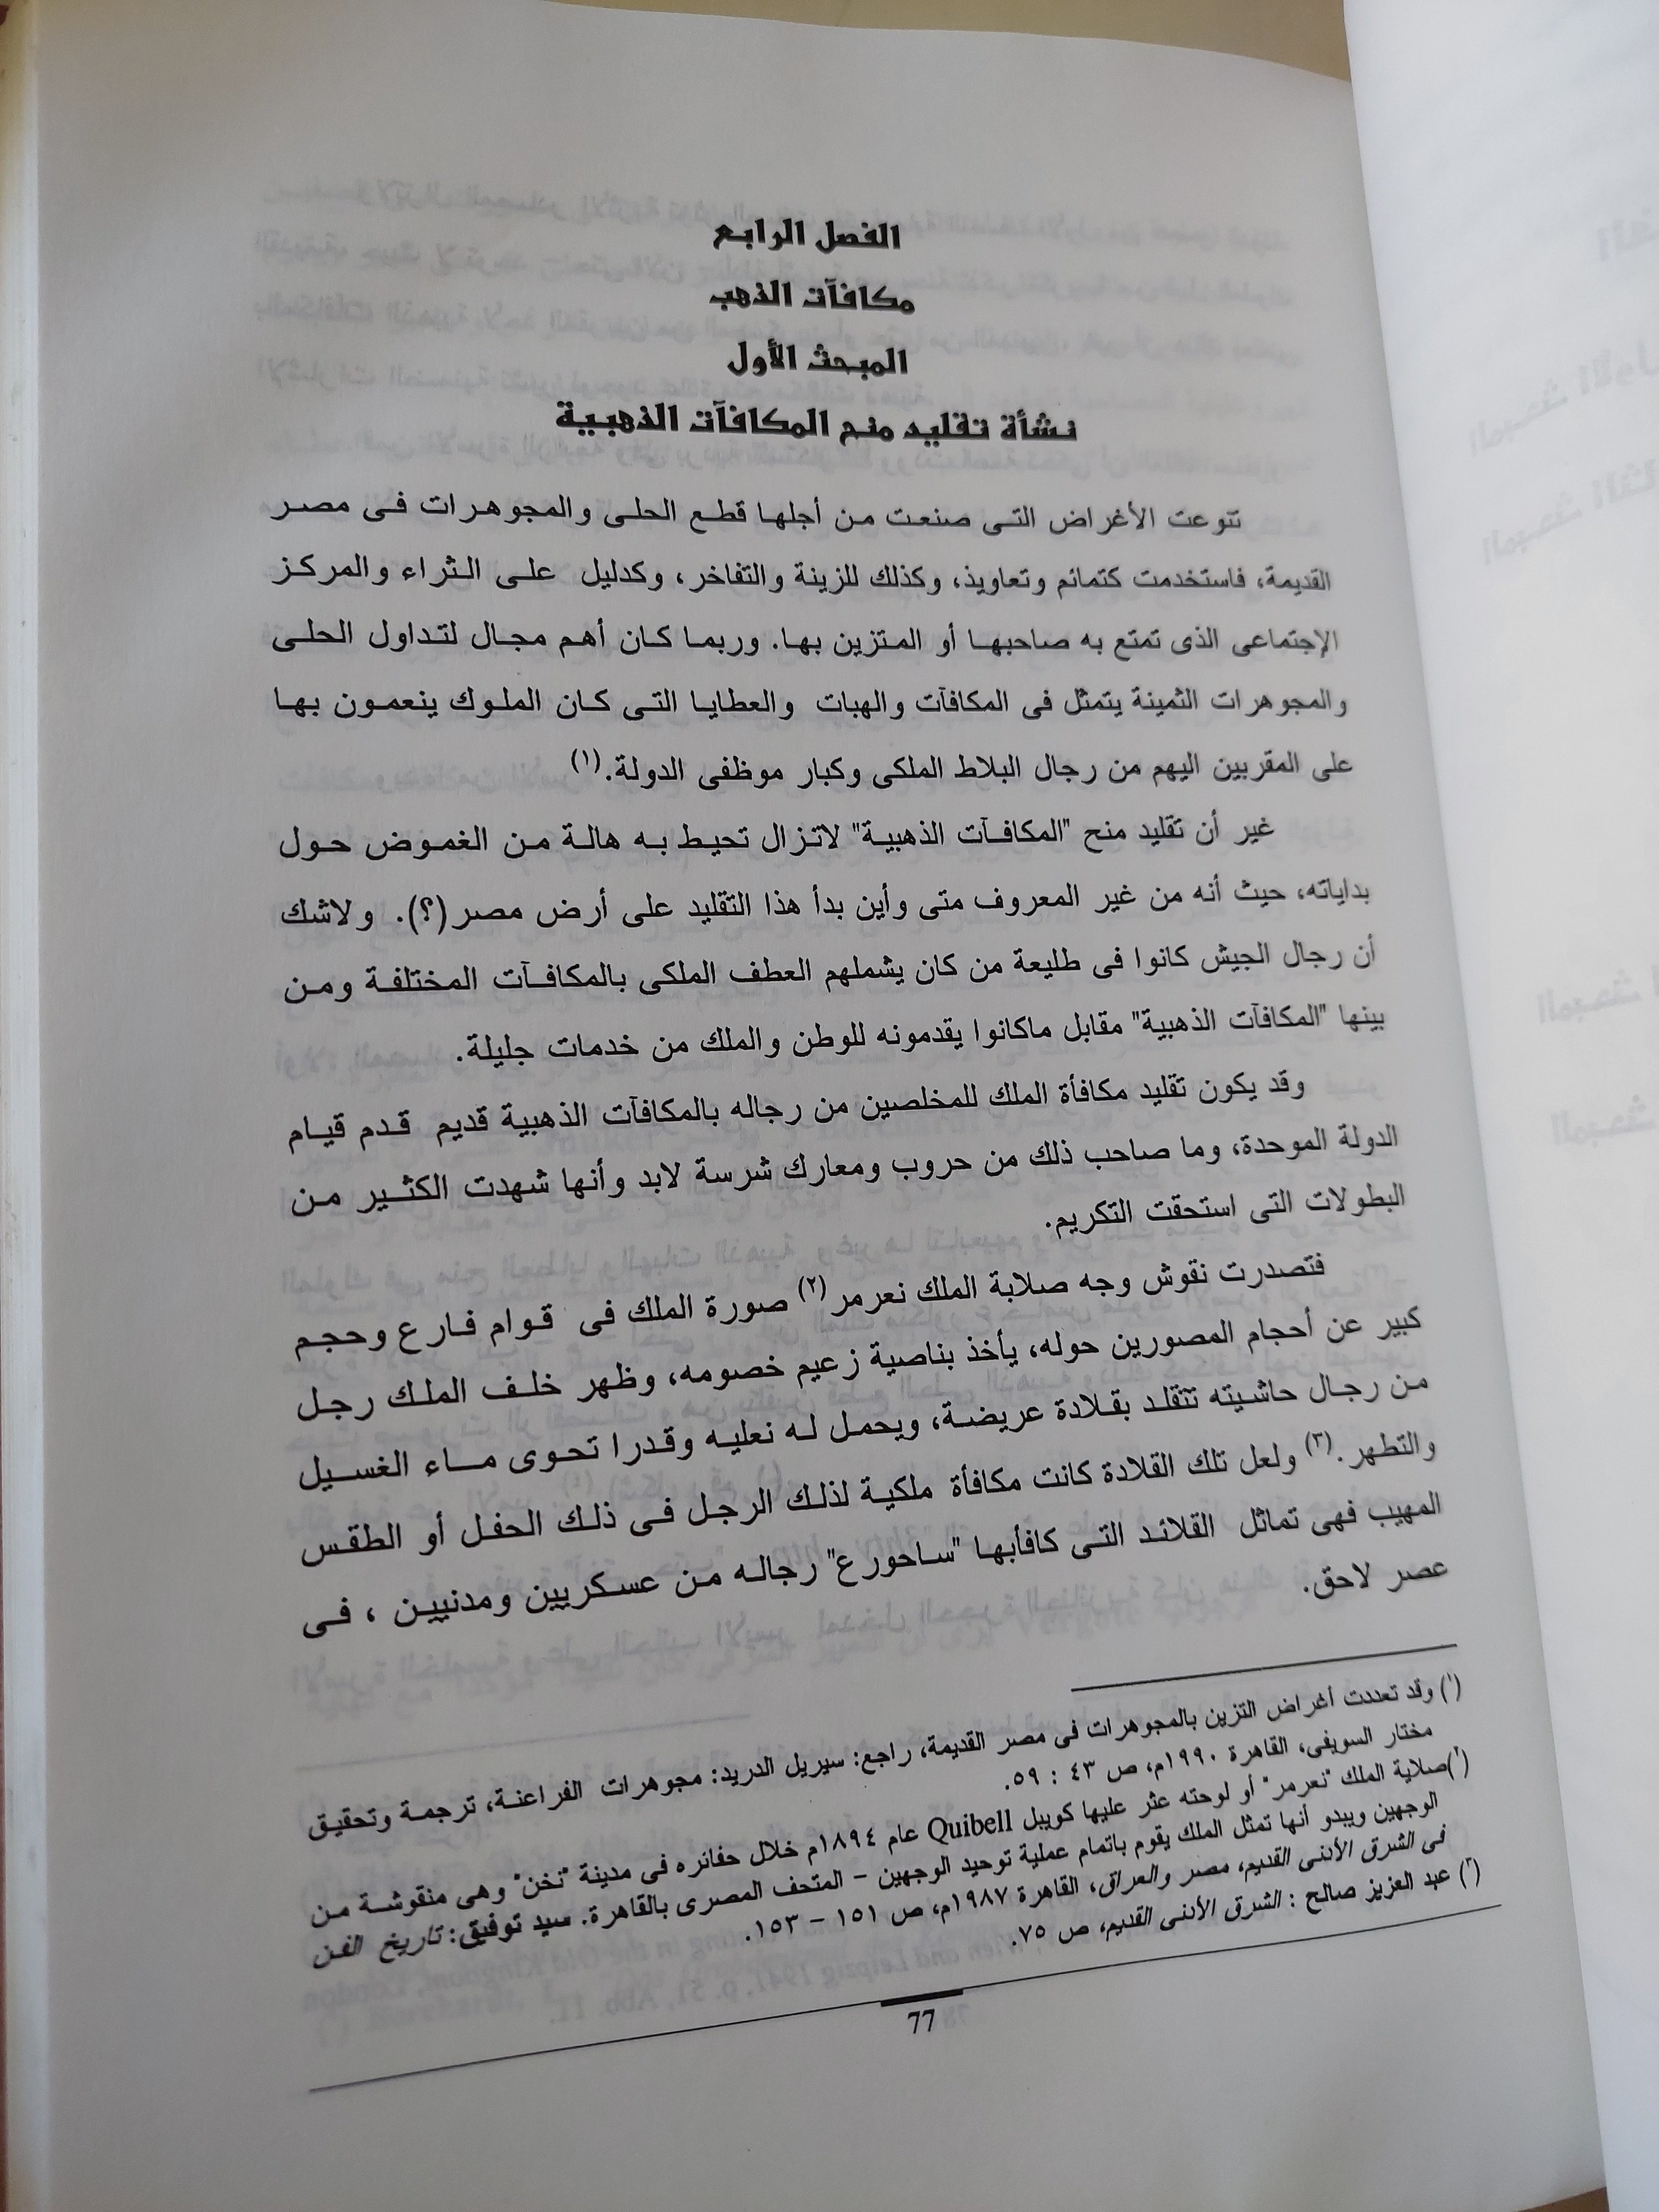 الفصل الرابع
مكافآت الذهب
المبحث الأول
نشأة تقليد منح المكافآت الذهبية
تنوعت الأغراض التى صنعت من أجلها قطع الحلى والمجوهرات فى مصر
القديمة، فاستخدمت كتمائم وتعاويذ، وكذلك للزينة والتفاخر، وكدليل على الثراء والمركز
الإجتماعى الذى تمتع به صاحبها أو المتزين بها. وربما كان أهم مجال لتداول الحلى
والمجوهرات الثمينة يتمثل فى المكافآت والهبات والعطايا التى كان الملوك ينعمون بها
على المقربين اليهم من رجال البلاط الملكى وكبار موظفى الدولة.(١)
غير أن تقليد منح "المكافآت الذهبية" لاتزال تحيط به هالة من الغموض حول
بداياته، حيث أنه من غير المعروف متى وأين بدأ هذا التقليد على أرض مصر(؟). ولاشك
أن رجال الجيش كانوا فى طليعة من كان يشملهم العطف الملكى بالمكافآت المختلفة ومن
بينها "المكافآت الذهبية" مقابل ماكانوا يقدمونه للوطن والملك من خدمات جليلة.
وقد يكون تقليد مكافأة الملك للمخلصين من رجاله بالمكافآت الذهبية قديم قدم قيام
الدولة الموحدة، وما صاحب ذلك من حروب ومعارك شرسة لابد وأنها شهدت الكثير من
البطولات التى استحقت التكريم.
فتصدرت نقوش وجه صلابة الملك نعرمر(٢) صورة الملك فى قوام فارع وحجم
كبير عن أحجام المصورين حوله، يأخذ بناصية زعيم خصومه، وظهر خلف الملك رجل
من رجال حاشيته تتقلد بقلادة عريضة، ويحمل له نعليه وقدرا تحوى ماء الغسيل
والتطهر.(٣) ولعل تلك القلادة كانت مكافأة ملكية لذلك الرجل فى ذلك الحفل أو الطقس
المهيب فهى تماثل القلائد التى كافأبها "ساحورع" رجاله من عسكريين ومدنيين ، فى
عصر لاحق.
(١) وقد تعددت أغراض التزين بالمجوهرات فى مصر القديمة، راجع: سيريل الدريد: مجوهرات الفراعنة، ترجمة وتحقيق
مختار السويفى، القاهرة ١٩٩٠م، ص ٤٣ : ٥٩.
(٢)صلاية الملك "نعرمر" أو لوحته عثر عليها كويبل Quibell عام ١٨٩٤م خلال حفائره فى مدينة "نخن" وهى منقوشة من
الوجهين ويبدو أنها تمثل الملك يقوم باتمام عملية توحيد الوجهين – المتحف المصرى بالقاهرة. سيد توفيق: تاريخ الفن
فى الشرق الأدنى القديم، مصر والعراق، القاهرة ١٩٨٧م، ص ١٥١ – ١٥٣.
(٣) عبد العزيز صالح : الشرق الأدنى القديم، ص ٧٥.
77